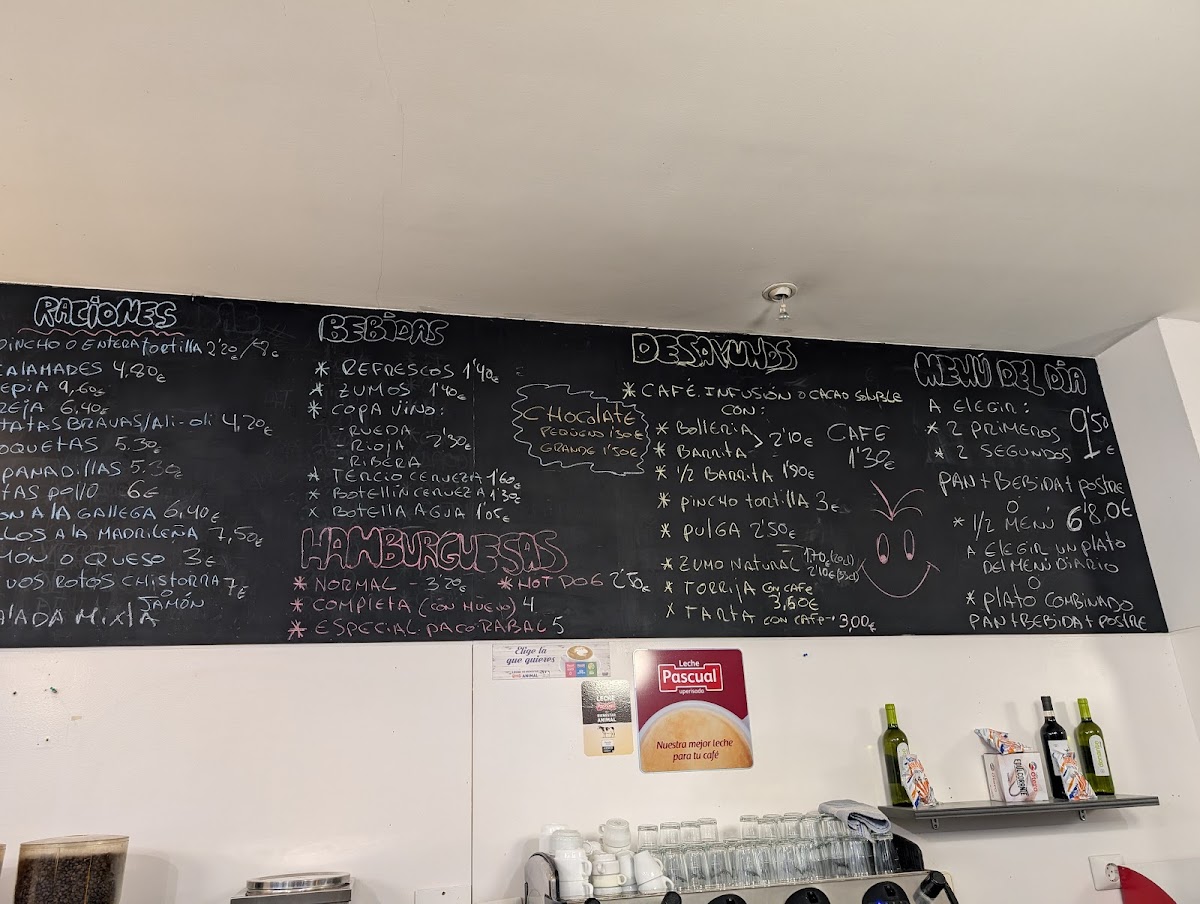 RACIONES
PINCHO O ENTERA tortilla 2'20€/8€
CALAMADES 4,80€
EPIA 9,60€
REJA 6,40€
TATAS BRAVAS/ALI-OLI 4,20€
OQUETAS 5.30€
PANADILLAS 5.30€
TAS POLLO 6€
ON A LA GALLEGA 6,40€
LLOS A LA MADRILEÑA 7,50€
MÓN O QUESO 3€
VOS ROTOS CHISTORRA 7€
O
JAMÓN
ALADA MIXTA
BEBIDAS
* REFRESCOS 1'40€
* ZUMOS 1'40€
* COPA VINO:
- RUEDA
- RIOJA 2'30€
- RIBERA
* TERCIO CERVEZA 1'60€
* BOTELLIN CERVEZA 1'30€
* BOTELLA AGUA 1'05€
HAMBURGUESAS
* NORMAL - 3'20€ * HOT DOG 2'50€
* COMPLETA (CON HUEVO) 4
* ESPECIAL PACO RABAL 5
CHOCOLATE
PEQUEÑO 1'30€
GRANDE 1'50€
DESAYUNOS
* CAFÉ. INFUSIÓN O CACAO SOLUBLE
CON:
* BOLLERIA
* BARRITA > 2'10€
* 1/2 BARRITA 1'90€
* PINCHO TORTILLA 3€
* PULGA 2'50€
* ZUMO NATURAL 1'70€ (20cl)
2'10€ (33cl)
* TORRIJA CON CAFE
3,60€
* TARTA CON CAFE → 3,00€
CAFE
1'30€
MENÚ DEL DIA
A ELEGIR:
* 2 PRIMEROS 9'50€
* 2 SEGUNDOS
PAN + BEBIDA + POSTRE
O
* 1/2 MENÚ 6'80€
A ELEGIR UN PLATO
DEL MENÚ DIARIO
O
* PLATO COMBINADO
PAN + BEBIDA + POSTRE
Elige la
que quieres
LECHE
Pascual
BIENESTAR
ANIMAL
Leche
Pascual
uperisada
Nuestra mejor leche
para tu café
EDULCORANTE